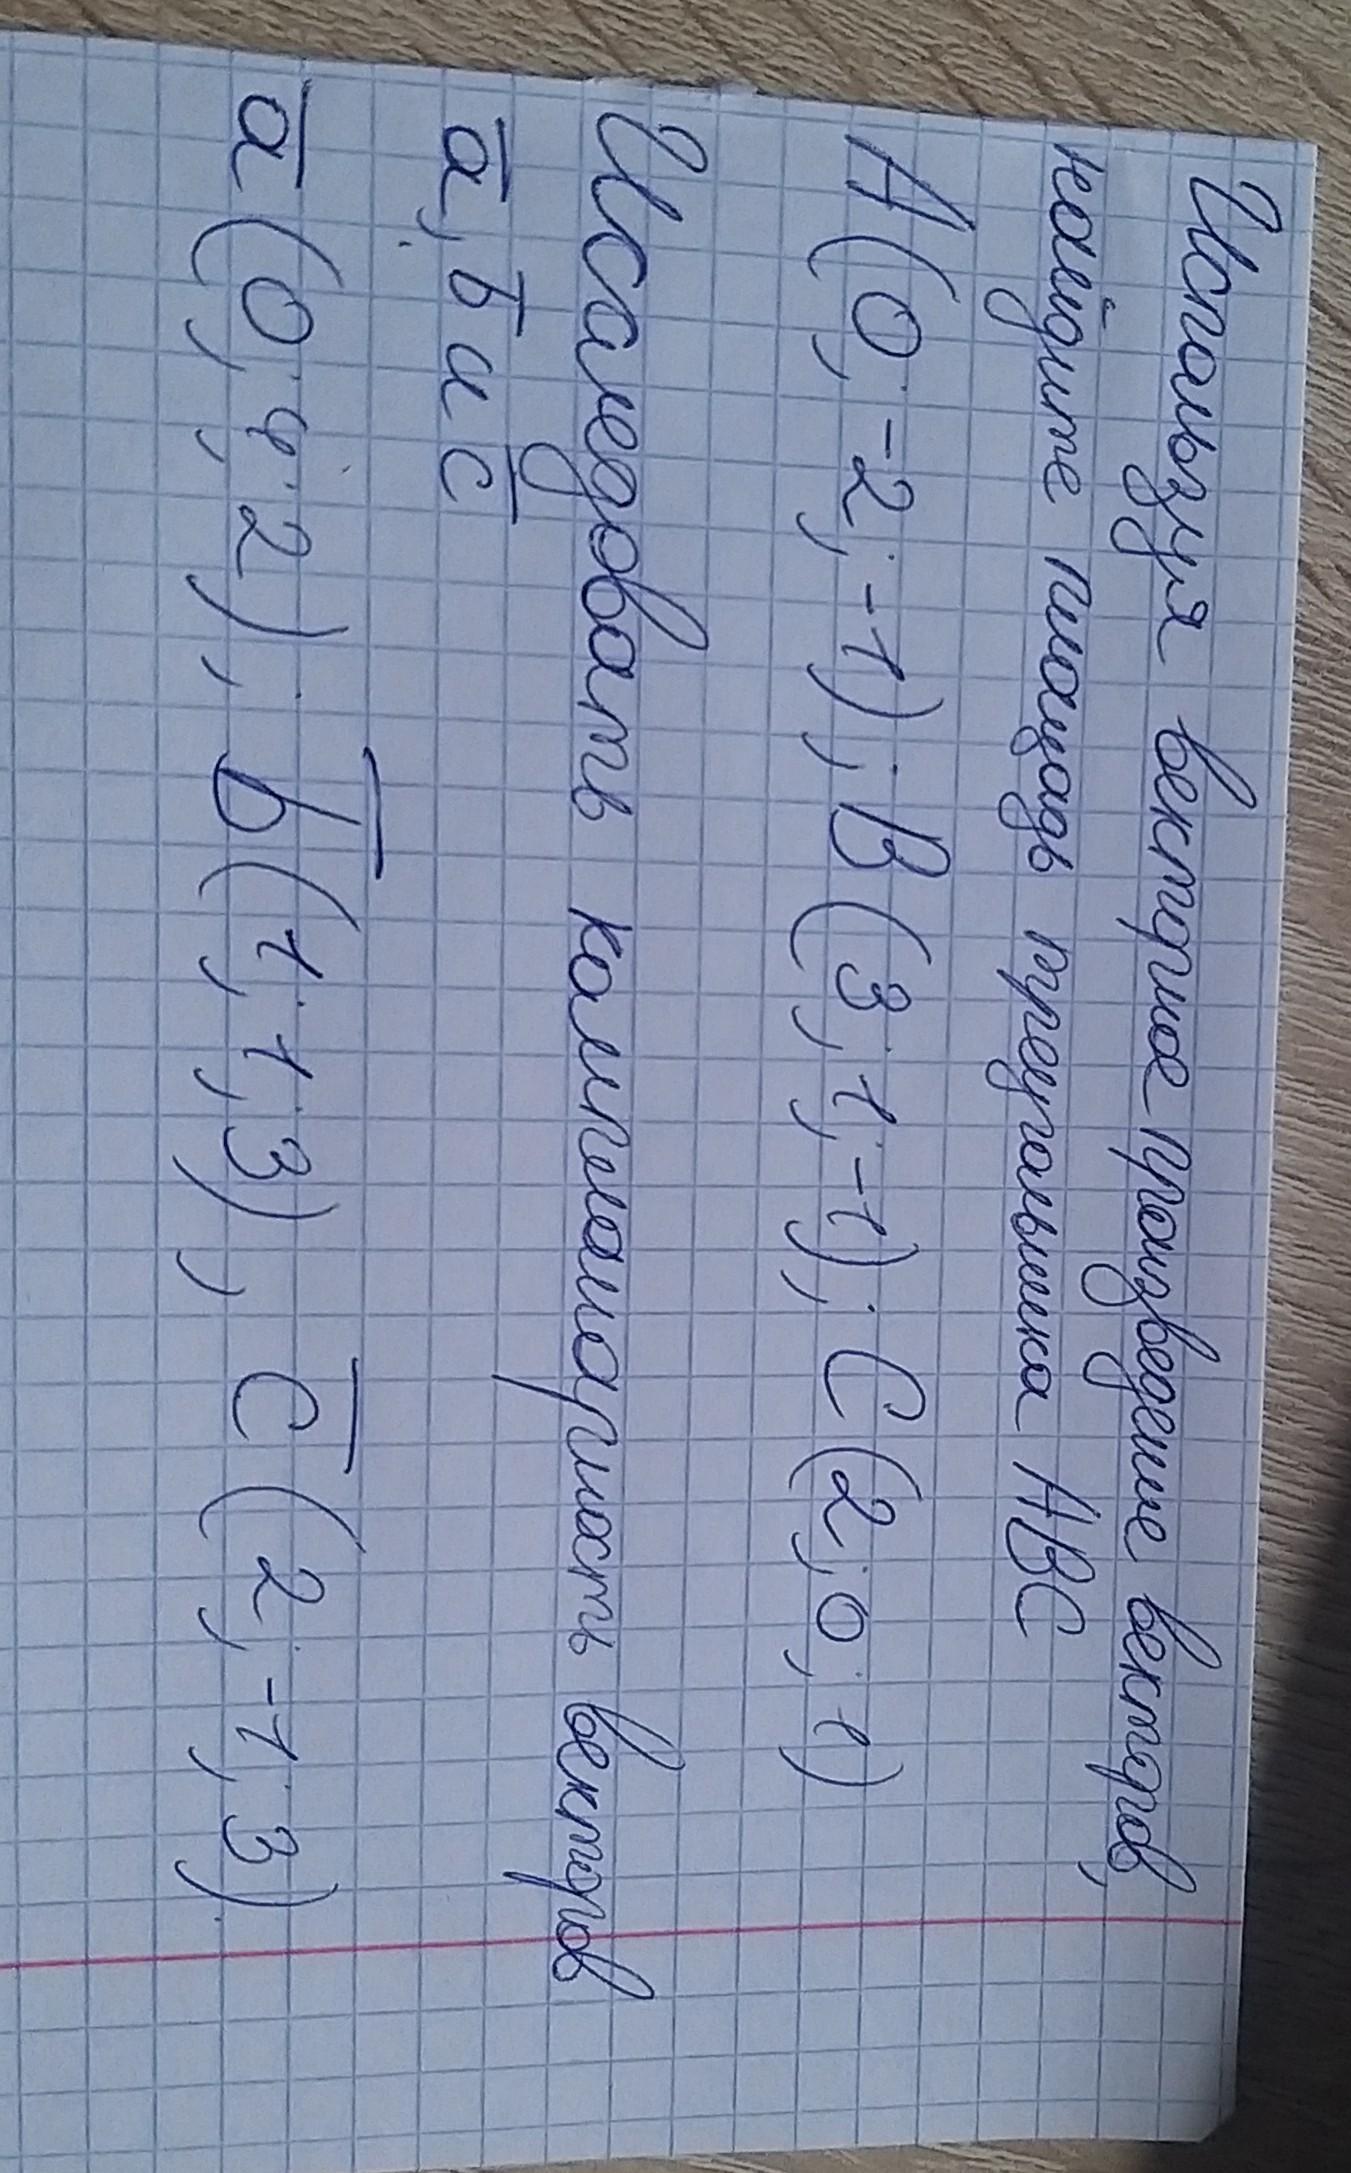 Используя векторное произведение векторов,
найдите площадь треугольника ABC
A(0; -2; -1); B(3; 1; -1); C(2; 0; 1)
Исследовать компланарность векторов
a̅, b̅ и c̅
a̅(0; 4; 2), b̅(1; 1; 3), c̅(2; -1; 3).